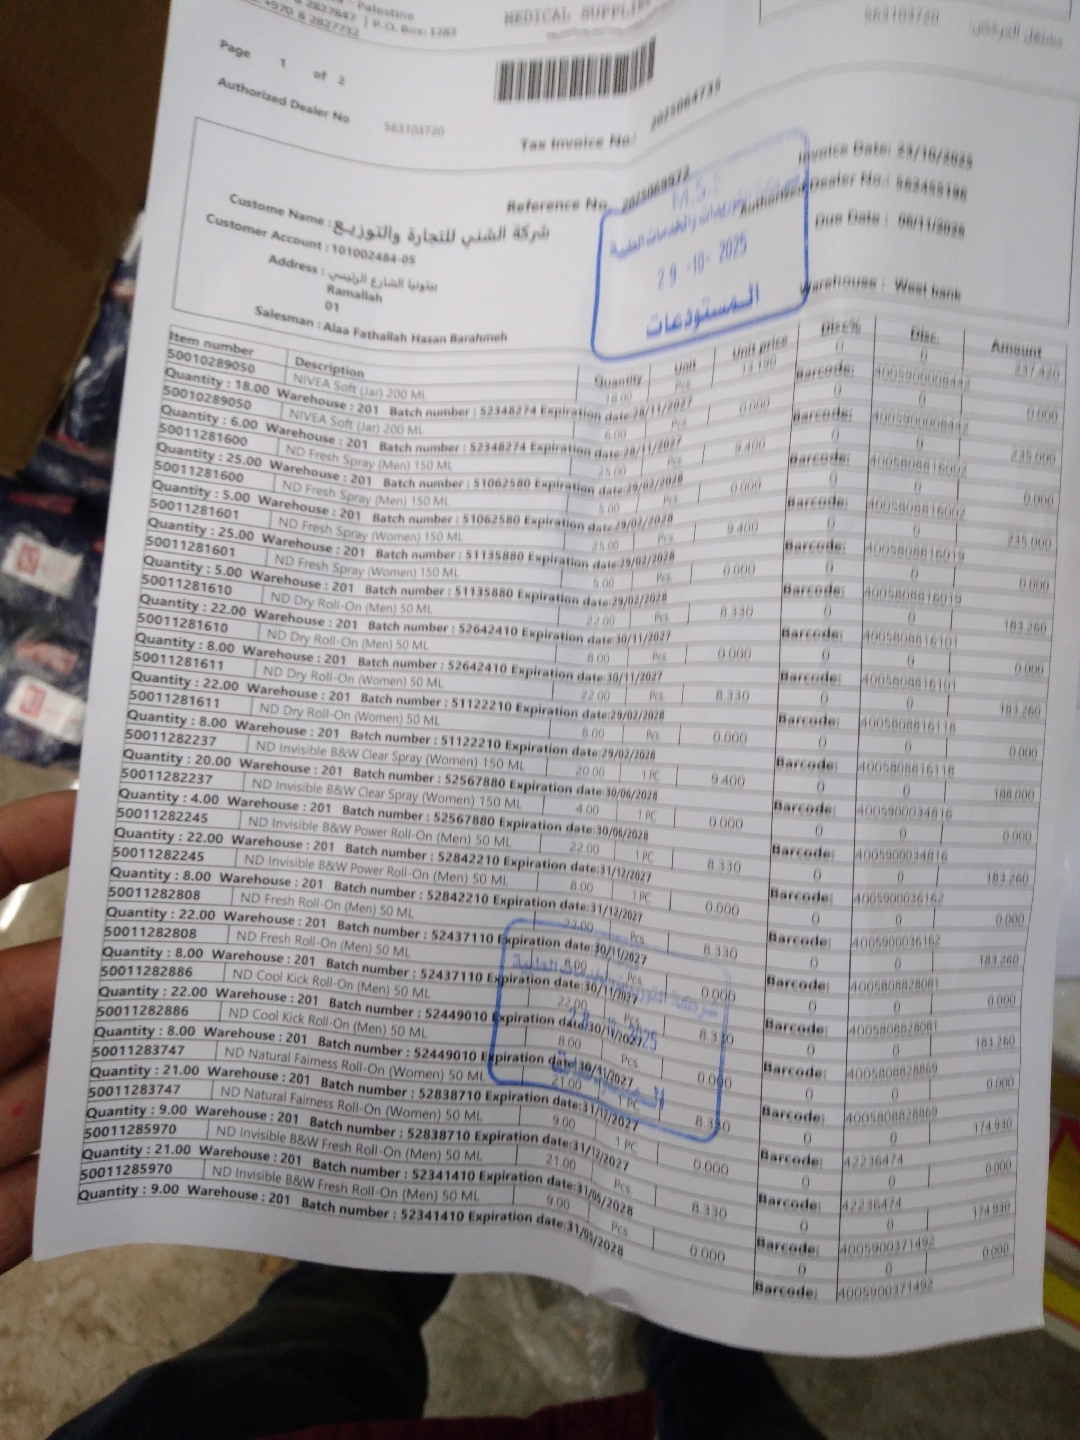 - Palestine
8 2827847 | P.O. Box: 1283
+970 8 2827732
MEDICAL SUPPLIES
563103720
Page 1 of 2
Authorized Dealer No 563103720
Tax Invoice No: 2025064735
Invoice Date: 23/10/2025
Reference No. 2025069972
Authorized Dealer No.: 562455196
Due Date : 08/11/2025
Custome Name : شركة الشني للتجارة والتوزيع
Customer Account : 101002484-05
Address : بيتونيا الشارع الرئيسي
Ramallah
01
Salesman : Alaa Fathallah Hasan Barahmeh
Warehouse : West bank
M.S.
29 -10- 2025
المستودعات
Item number Description Quantity Unit Unit price Disc% Disc. Amount
50010289050 NIVEA Soft (Jar) 200 ML 18.00 Pcs 13.190 0 0 237.420
Quantity : 18.00 Warehouse : 201 Batch number : 52348274 Expiration date:28/11/2027 Barcode:
50010289050 NIVEA Soft (Jar) 200 ML 6.00 Pcs 0.000 0 0 0.000
Quantity : 6.00 Warehouse : 201 Batch number : 52348274 Expiration date:28/11/2027 Barcode:
50011281600 ND Fresh Spray (Men) 150 ML 25.00 Pcs 9.400 0 0 235.000
Quantity : 25.00 Warehouse : 201 Batch number : 51062580 Expiration date:29/02/2028 Barcode: 4005808816002
50011281600 ND Fresh Spray (Men) 150 ML 5.00 Pcs 0.000 0 0 0.000
Quantity : 5.00 Warehouse : 201 Batch number : 51062580 Expiration date:29/02/2028 Barcode: 4005808816002
50011281601 ND Fresh Spray (Women) 150 ML 25.00 Pcs 9.400 0 0 235.000
Quantity : 25.00 Warehouse : 201 Batch number : 51135880 Expiration date:29/02/2028 Barcode: 4005808816019
50011281601 ND Fresh Spray (Women) 150 ML 5.00 Pcs 0.000 0 0 0.000
Quantity : 5.00 Warehouse : 201 Batch number : 51135880 Expiration date:29/02/2028 Barcode: 4005808816019
50011281610 ND Dry Roll-On (Men) 50 ML 22.00 Pcs 8.330 0 0 183.260
Quantity : 22.00 Warehouse : 201 Batch number : 52642410 Expiration date:30/11/2027 Barcode: 4005808816101
50011281610 ND Dry Roll-On (Men) 50 ML 8.00 Pcs 0.000 0 0 0.000
Quantity : 8.00 Warehouse : 201 Batch number : 52642410 Expiration date:30/11/2027 Barcode: 4005808816101
50011281611 ND Dry Roll-On (Women) 50 ML 22.00 Pcs 8.330 0 0 183.260
Quantity : 22.00 Warehouse : 201 Batch number : 51122210 Expiration date:29/02/2028 Barcode: 4005808816118
50011281611 ND Dry Roll-On (Women) 50 ML 8.00 Pcs 0.000 0 0 0.000
Quantity : 8.00 Warehouse : 201 Batch number : 51122210 Expiration date:29/02/2028 Barcode: 4005808816118
50011282237 ND Invisible B&W Clear Spray (Women) 150 ML 20.00 1 PC 9.400 0 0 188.000
Quantity : 20.00 Warehouse : 201 Batch number : 52567880 Expiration date:30/06/2028 Barcode: 4005900034816
50011282237 ND Invisible B&W Clear Spray (Women) 150 ML 4.00 1 PC 0.000 0 0 0.000
Quantity : 4.00 Warehouse : 201 Batch number : 52567880 Expiration date:30/06/2028 Barcode: 4005900034816
50011282245 ND Invisible B&W Power Roll-On (Men) 50 ML 22.00 1 PC 8.330 0 0 183.260
Quantity : 22.00 Warehouse : 201 Batch number : 52842210 Expiration date:31/12/2027 Barcode: 4005900036162
50011282245 ND Invisible B&W Power Roll-On (Men) 50 ML 8.00 1 PC 0.000 0 0 0.000
Quantity : 8.00 Warehouse : 201 Batch number : 52842210 Expiration date:31/12/2027 Barcode: 4005900036162
50011282808 ND Fresh Roll-On (Men) 50 ML 22.00 Pcs 8.330 0 0 183.260
Quantity : 22.00 Warehouse : 201 Batch number : 52437110 Expiration date:30/11/2027 Barcode: 4005808828081
50011282808 ND Fresh Roll-On (Men) 50 ML 8.00 Pcs 0.000 0 0 0.000
Quantity : 8.00 Warehouse : 201 Batch number : 52437110 Expiration date:30/11/2027 Barcode: 4005808828081
50011282886 ND Cool Kick Roll-On (Men) 50 ML 22.00 Pcs 8.330 0 0 183.260
Quantity : 22.00 Warehouse : 201 Batch number : 52449010 Expiration date:30/11/2027 Barcode: 4005808828869
50011282886 ND Cool Kick Roll-On (Men) 50 ML 8.00 Pcs 0.000 0 0 0.000
Quantity : 8.00 Warehouse : 201 Batch number : 52449010 Expiration date:30/11/2027 Barcode: 4005808828869
50011283747 ND Natural Fairness Roll-On (Women) 50 ML 21.00 1 PC 8.330 0 0 174.930
Quantity : 21.00 Warehouse : 201 Batch number : 52838710 Expiration date:31/12/2027 Barcode: 42236474
50011283747 ND Natural Fairness Roll-On (Women) 50 ML 9.00 1 PC 0.000 0 0 0.000
Quantity : 9.00 Warehouse : 201 Batch number : 52838710 Expiration date:31/12/2027 Barcode: 42236474
50011285970 ND Invisible B&W Fresh Roll-On (Men) 50 ML 21.00 Pcs 8.330 0 0 174.930
Quantity : 21.00 Warehouse : 201 Batch number : 52341410 Expiration date:31/05/2028 Barcode: 4005900371492
50011285970 ND Invisible B&W Fresh Roll-On (Men) 50 ML 9.00 Pcs 0.000 0 0 0.000
Quantity : 9.00 Warehouse : 201 Batch number : 52341410 Expiration date:31/05/2028 Barcode: 4005900371492